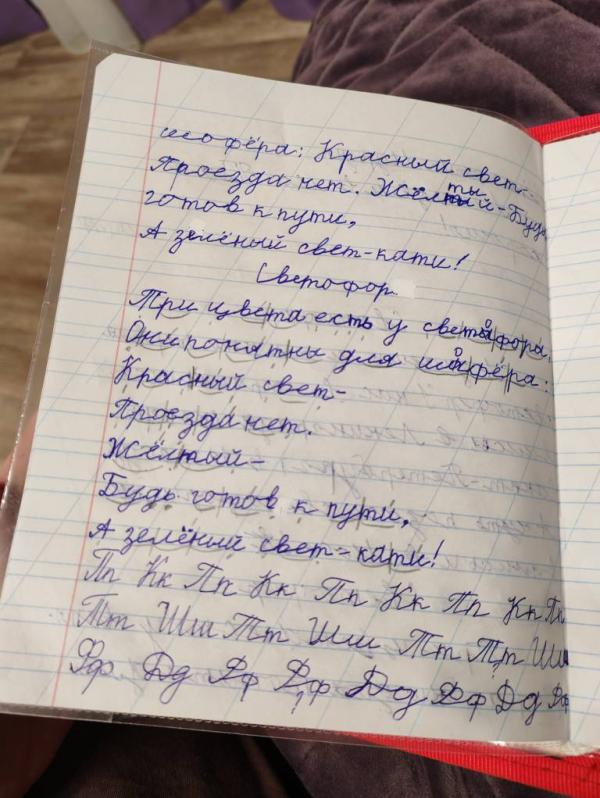 шофёра: Красный свет-
Проезда нет. Жёлтый-Будь
готов к пути,
А зелёный свет-кати!
Светофор.
Три цвета есть у светофора,
Они понятны для шофёра:
Красный свет-
Проезда нет.
Жёлтый-
Будь готов к пути,
А зелёный свет-кати!
Пп Кк Пп Кк Пп Кк Пп Кк Пп
Тт Шш Тт Шш Тт Тт Шш
Фф Дд Фф Фф Дд Фф Дд Фф